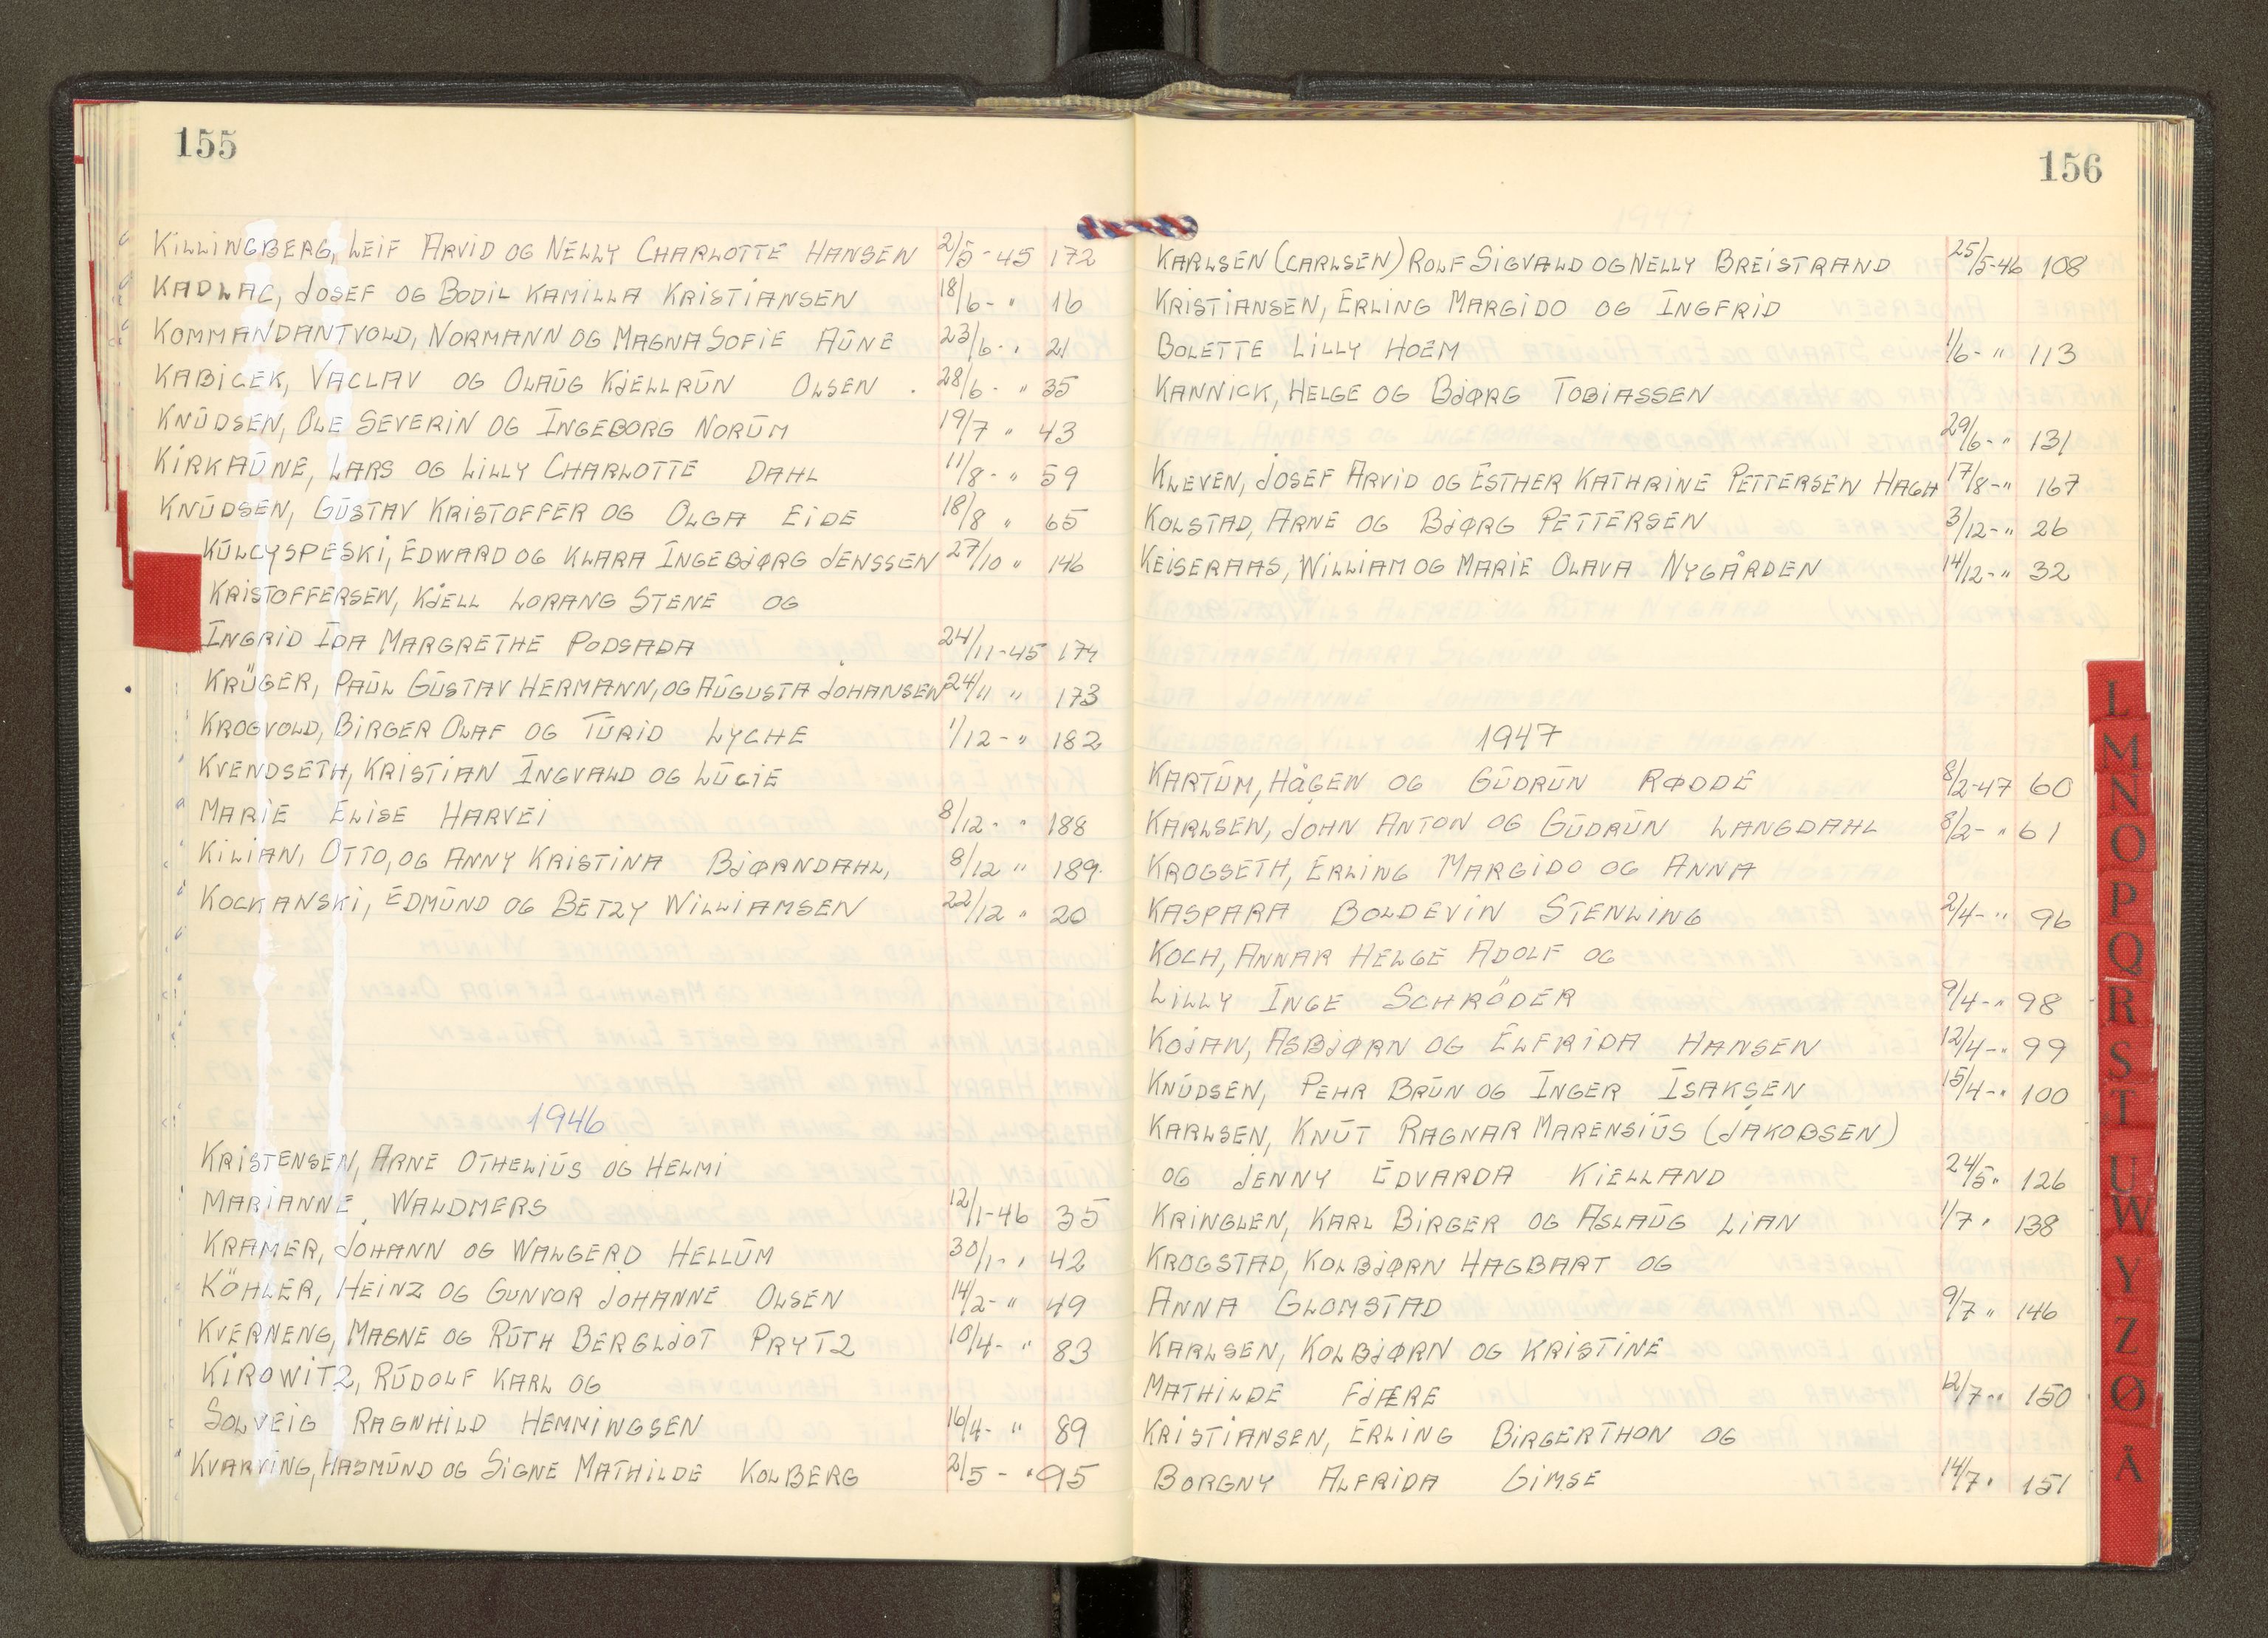 155
KILLINGBERG, LEIF ARVID OG NELLY CHARLOTTE HANSEN 2/5-45 172
KADLAC, JOSEF OG BODIL KAMILLA KRISTIANSEN 18/6-" 16
KOMMANDANTVOLD, NORMANN OG MAGNA SOFIE AŪNE 23/6-" 21
KABICEK, VACLAV OG OLAŪG KJELLRŪN OLSEN . 28/6-" 35
KNŪDSEN, OLE SEVERIN OG INGEBORG NORŪM 19/7 " 43
KIRKAŪNE, LARS OG LILLY CHARLOTTE DAHL 11/8-" 59
KNŪDSEN, GŪSTAV KRISTOFFER OG OLGA EIDE 18/8 " 65
KŪLCYSPESKI, EDWARD OG KLARA INGEBJØRG JENSSEN 27/10 " 146
KRISTOFFERSEN, KJELL LORANG STENE OG
INGRID IDA MARGRETHE PODSADA 24/11-45 174
KRÜGER, PAŪL GŪSTAV HERMANN, OG AŪGUSTA JOHANSEN 24/11 " 173
KROGVOLD, BIRGER OLAF OG TŪRID LYCHE 1/12-" 182
KVENDSETH, KRISTIAN INGVALD OG LŪCIE
MARIE ELISE HARVEI 8/12-" 188
KILIAN, OTTO, OG ANNY KRISTINA BJØRNDAHL, 8/12 " 189.
KOCKANSKI, EDMŪND OG BETZY WILLIAMSEN 22/12 " 20
1946
KRISTENSEN, ARNE OTHELIŪS OG HELMI
MARIANNE WALDMERS 12/1-46 35
KRAMER, JOHANN OG WALGERD HELLŪM 30/1-" 42
KÖHLER, HEINZ OG GUNVOR JOHANNE OLSEN 14/2-" 49
KVERNENG, MAGNE OG RŪTH BERGLJOT PRYTZ 10/4-" 83
KIROWITZ, RŪDOLF KARL OG
SOLVEIG RAGNHILD HEMMINGSEN 16/4-" 89
KVARVING, HASMŪND OG SIGNE MATHILDE KOLBERG 2/5-" 95
156
KARLSEN (CARLSEN) ROLF SIGVALD OG NELLY BREISTRAND 25/5-46 108
KRISTIANSEN, ERLING MARGIDO OG INGFRID
BOLETTE LILLY HOEM 1/6-" 113
KANNICK, HELGE OG BJØRG TOBIASSEN
29/6-" 131
KLEVEN, JOSEF ARVID OG ESTHER KATHRINE PETTERSEN HAGH 17/8-" 167
KOLSTAD, ARNE OG BJØRG PETTERSEN 3/12-" 26
KEISERAAS, WILLIAM OG MARIE OLAVA NYGÅRDEN 14/12-" 32
1947
KARTŪM, HÅGEN OG GŪDRŪN RØDDE 8/2-47 60
KARLSEN, JOHN ANTON OG GŪDRŪN LANGDAHL 8/2-" 61
KROGSETH, ERLING MARGIDO OG ANNA
KASPARA BOLDEVIN STENLING 2/4-" 96
KOCH, ANNAR HELGE ADOLF OG
LILLY INGE SCHRÖDER 9/4-" 98
KOJAN, ASBJØRN OG ELFRIDA HANSEN 12/4-" 99
KNŪDSEN, PEHR BRŪN OG INGER ISAKSEN 15/4-" 100
KARLSEN, KNŪT RAGNAR MARENSIŪS (JAKOBSEN)
OG JENNY EDVARDA KIELLAND 24/5" 126
KRINGLEN, KARL BIRGER OG ASLAŪG LIAN 1/7 " 138
KROGSTAD, KOLBJØRN HAGBART OG
ANNA GLOMSTAD 9/7 " 146
KARLSEN, KOLBJØRN OG KRISTINE
MATHILDE FJÆRE 12/7 " 150
KRISTIANSEN, ERLING BIRGERTHON OG
BORGNY ALFRIDA GIMSE 14/7 " 151
L
M
N
O
P
Q
R
S
T
U
W
Y
Z
Ø
A